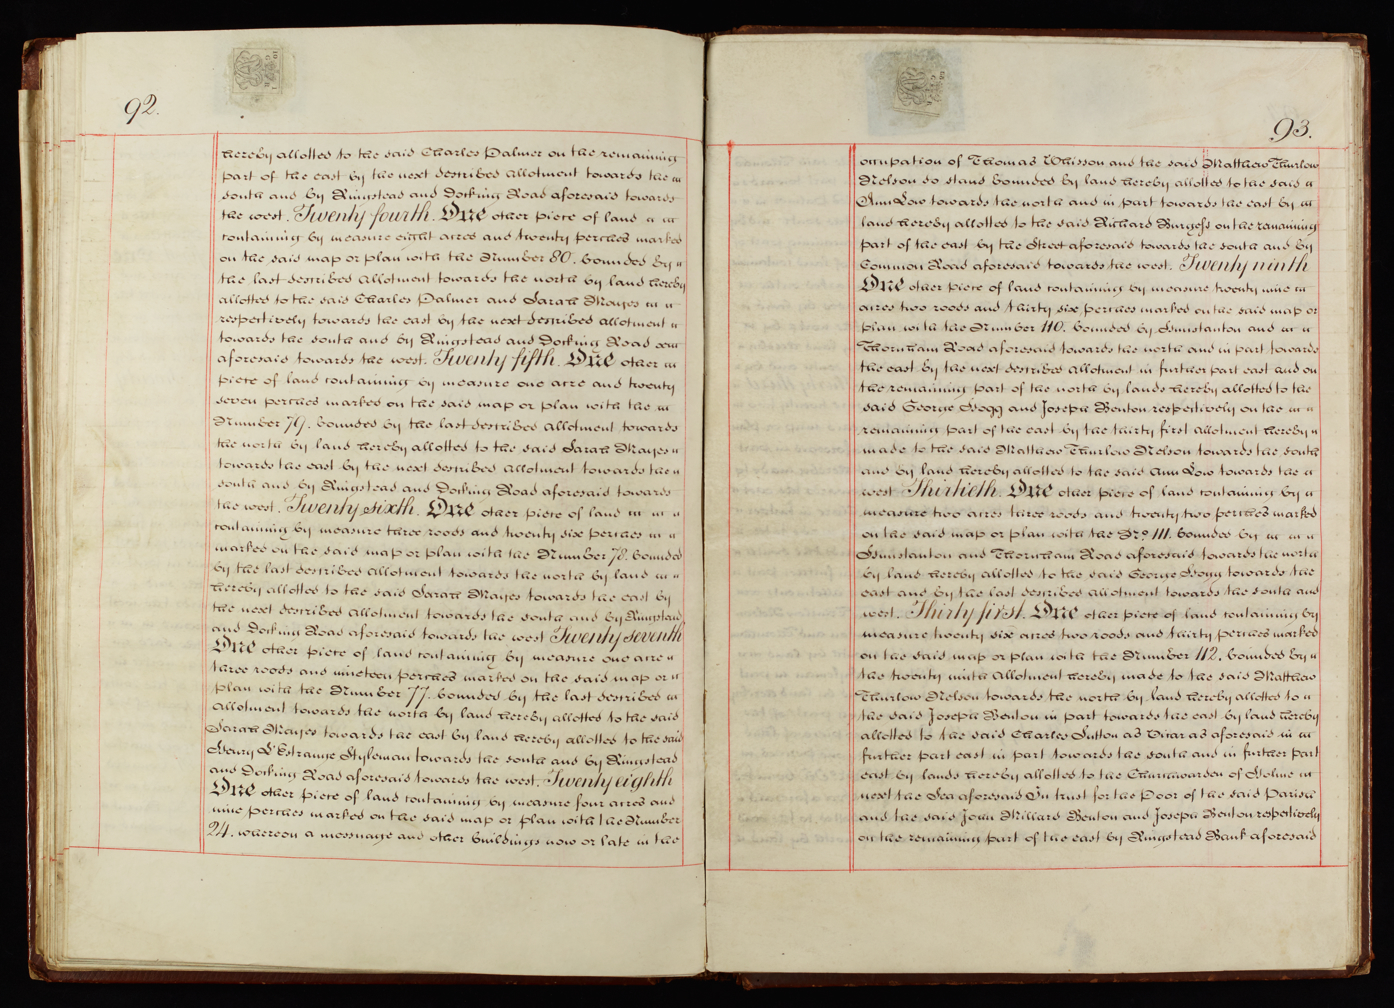 92.
thereby allotted to the said Charles Palmer on the remaining
part of the east by the next described allotment towards the
south and by Ringstead and Docking Road aforesaid towards
the west. Twenty fourth. One other piece of land
containing by measure eight acres and twenty perches marked
on the said map or plan with the Number 80. bounded by
the last described allotment towards the north by land hereby
allotted to the said Charles Palmer and Sarah Mayes
respectively towards the east by the next described allotment
towards the south and by Ringstead and Docking Road
aforesaid towards the west. Twenty fifth. One other
piece of land containing by measure one acre and twenty
seven perches marked on the said map or plan with the
Number 79. bounded by the last described allotment towards
the north by land hereby allotted to the said Sarah Mayes
towards the east by the next described allotment towards the
south and by Ringstead and Docking Road aforesaid towards
the west. Twenty sixth. One other piece of land
containing by measure three roods and twenty six perches
marked on the said map or plan with the Number 78. bounded
by the last described allotment towards the north by land
thereby allotted to the said Sarah Mayes towards the east by
the next described allotment towards the south and by Ringstead
and Docking Road aforesaid towards the west Twenty seventh
One other piece of land containing by measure one acre
three roods and nineteen perches marked on the said map or
plan with the Number 77. bounded by the last described
allotment towards the north by land hereby allotted to the said
Sarah Mayes towards the east by land hereby allotted to the said
Henry L'Estrange Styleman towards the south and by Ringstead
and Docking Road aforesaid towards the west. Twenty eighth
One other piece of land containing by measure four acres and
nine perches marked on the said map or plan with the Number
24. whereon a messuage and other buildings now or late in the
93.
occupation of Thomas Whisson and the said Matthew Thurlow
Nelson do stand bounded by land hereby allotted to the said
Ann Low towards the north and in part towards the east by
land hereby allotted to the said Richard Burgess on the remaining
part of the east by the Street aforesaid towards the south and by
Common Road aforesaid towards the west. Twenty ninth
One other piece of land containing by measure twenty nine
acres two roods and thirty six perches marked on the said map or
plan with the Number 110. bounded by Hunstanton and
Thornham Road aforesaid towards the north and in part towards
the east by the next described allotment in further part east and on
the remaining part of the north by lands hereby allotted to the
said George Hogg and Joseph Benton respectively on the
remaining part of the east by the thirty first allotment hereby
made to the said Matthew Thurlow Nelson towards the south
and by land hereby allotted to the said Ann Low towards the
west Thirtieth. One other piece of land containing by
measure two acres three roods and twenty two perches marked
on the said map or plan with the No. 111. bounded by
Hunstanton and Thornham Road aforesaid towards the north
by land hereby allotted to the said George Hogg towards the
east and by the last described allotment towards the south and
west. Thirty first. One other piece of land containing by
measure twenty six acres two roods and thirty perches marked
on the said map or plan with the Number 112. bounded by
the twenty ninth Allotment hereby made to the said Matthew
Thurlow Nelson towards the north by land hereby allotted to
the said Joseph Benton in part towards the east by land hereby
allotted to the said Charles Sutton as Vicar as aforesaid in
further part east in part towards the south and in further part
east by lands hereby allotted to the Churchwarden of Holme
next the Sea aforesaid In trust for the Poor of the said Parish
and the said John Millard Benton and Joseph Benton respectively
on the remaining part of the east by Ringstead Bank aforesaid